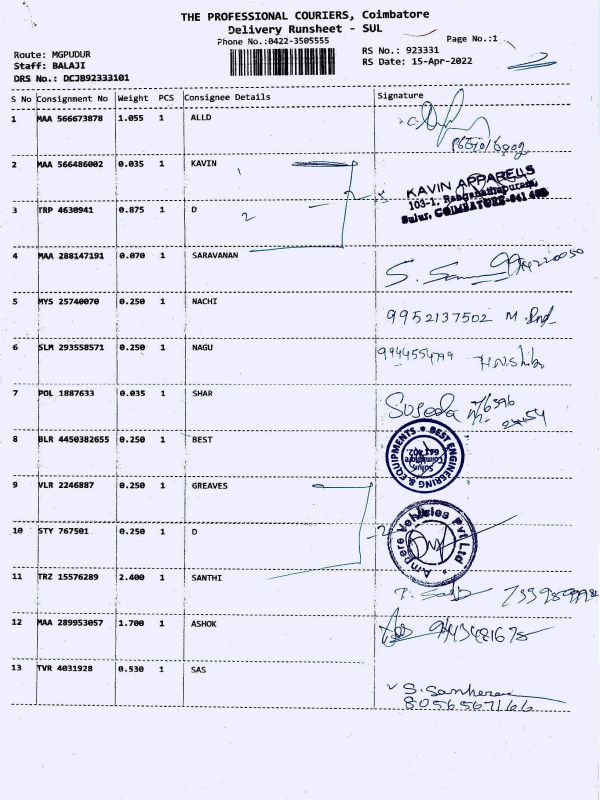 THE PROFESSIONAL COURIERS, Coimbatore
Delivery Runsheet - SUL
Phone No.:0422-3505555
Page No.:1
Route: MGPUDUR
Staff: BALAJI
DRS No.: DCJB92333101
RS No.: 923331
RS Date: 15-Apr-2022
S No Consignment No Weight PCS Consignee Details Signature
1 MAA 566673878 1.055 1 ALLD
2 MAA 566486002 0.035 1 KAVIN
KAVIN APPARELS
103-1, Ranganathapuram,
Sulur, COIMBATORE-641 402
3 TRP 4630941 0.875 1 D 2
4 MAA 288147191 0.070 1 SARAVANAN
5 MYS 25740070 0.250 1 NACHI 9952137502
6 SLM 293558571 0.250 1 NAGU 9944554799
7 POL 1887633 0.035 1 SHAR
8 BLR 4450382655 0.250 1 BEST
BEST ENGINEERING & EQUIPMENTS
Sulur, Coimbatore 641 402.
9 VLR 2246887 0.250 1 GREAVES
10 STY 767501 0.250 1 D
Ampere Vehicles Pvt Ltd
11 TRZ 15576289 2.400 1 SANTHI
12 MAA 289953057 1.700 1 ASHOK 9443481678
13 TVR 4031928 0.530 1 SAS S. Sankaran
8056567166